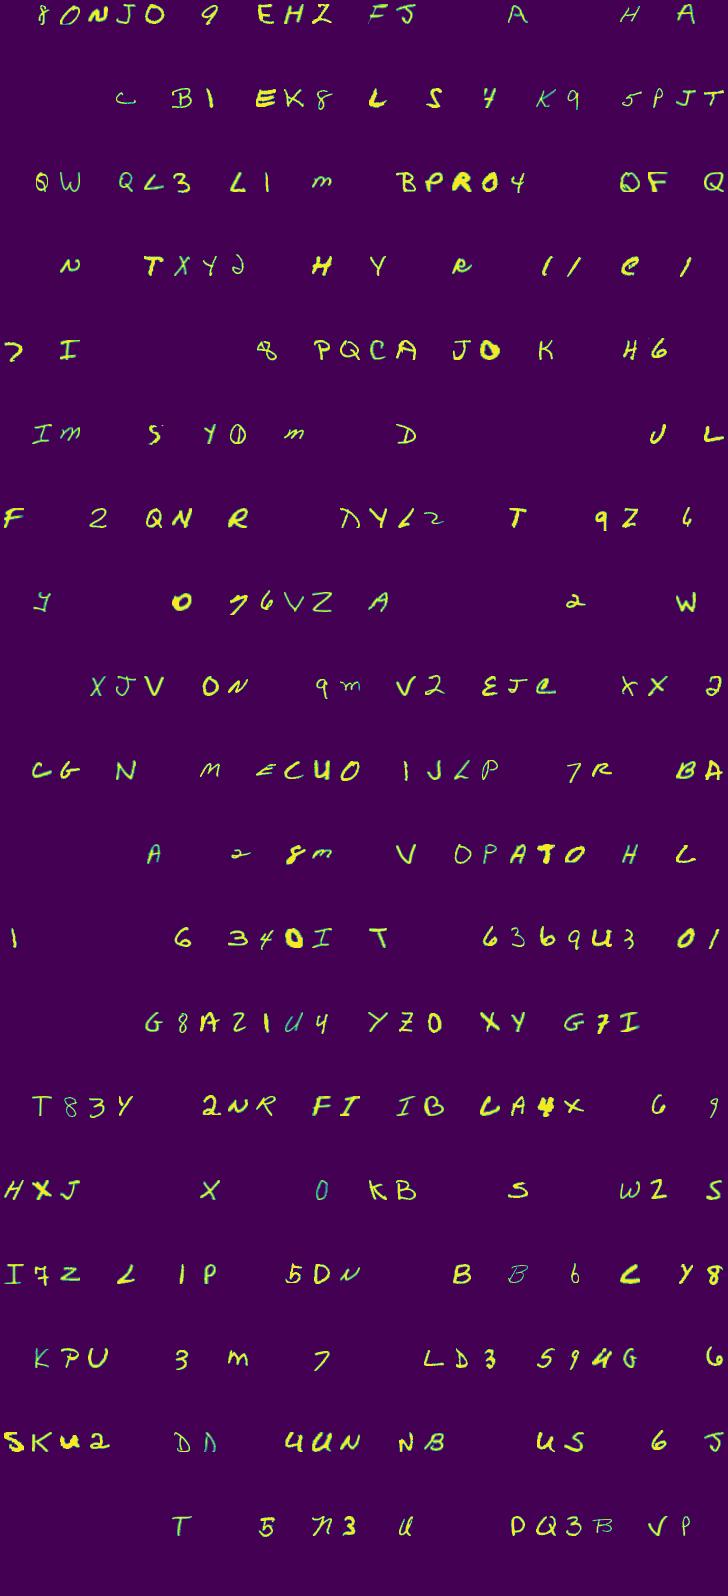 8 0 N J 0 9 E H Z F J A H A
C B 1 E K 8 L S 4 K 9 5 P J T
Q W Q L 3 L 1 m B P R 0 4 Q F Q
N T X Y 2 H Y R 1 1 C 1
7 I 8 P Q C A J 0 K H 6
I m S Y 0 m D J L
F 2 Q N R D Y L 2 T 9 Z 6
Y 0 7 6 V Z A 2 W
X J V 0 N 9 m V 2 E J C X X 2
C G N M E C U 0 1 J L P 7 R B A
A 2 8 m V 0 P A T 0 H L
1 6 3 4 0 I T 6 3 6 9 U 3 0 1
G 8 A 2 1 U 4 Y Z 0 X Y G 7 I
T 8 3 Y 2 N R F I I B C A 4 X 6 9
H X J X 0 K B S W 2 S
I 7 Z L 1 P 5 D N B B 6 C Y 8
K P U 3 m 7 L D 3 5 9 4 G 6
5 K U 2 D D 4 U N N B U S 6 J
T 5 N 3 U D Q 3 B V P